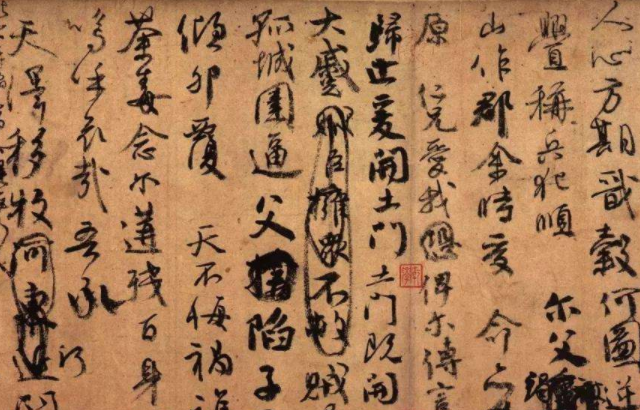 人心方期戩穀何圖逆
舋稱兵犯順 爾父
山作郡余時受 命亦
原 仁兄愛我恐俾爾傳言
歸止爰開土門土門既開
大蹙賊臣擁衆不救賊
孤城圍逼父陷子
傾卵覆 天不悔禍誰
荼毒念爾遘殘百身
嗚呼哀哉吾承
天澤移牧河東近